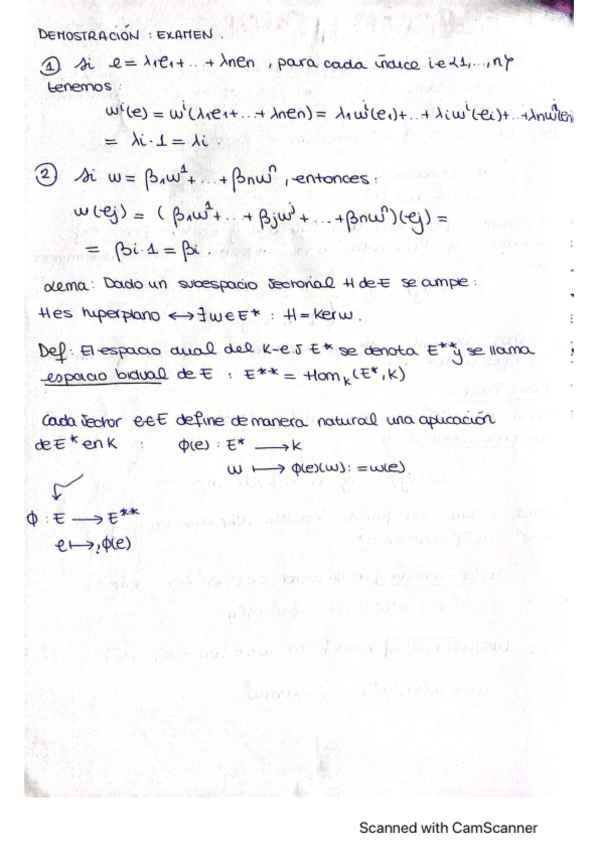 DEMOSTRACIÓN : EXAMEN .
① Si e = λ₁e₁ + ... + λnen , para cada índice i ∈ {1,...,n}
tenemos :
wⁱ(e) = wⁱ(λ₁e₁ + ... + λnen) = λ₁wⁱ(e₁) + ... + λiwⁱ(ei) + ... + λnwⁱ(en)
= λi · 1 = λi .
② Si w = β₁w¹ + ... + βnwⁿ , entonces :
w(ej) = ( β₁w¹ + ... + βjwʲ + ... + βnwⁿ)(ej) =
= βi · 1 = βi .
Lema : Dado un subespacio vectorial H de E se cumple :
H es hiperplano ↔ ∃ w ∈ E* : H = Ker w .
Def : El espacio dual del K-e.v E* se denota E** y se llama
espacio bidual de E : E** = Homₖ(E*, K)
Cada vector e∈E define de manera natural una aplicación
de E* en K : ϕ(e) : E* ⟶ K
w ⟼ ϕ(e)(w) := w(e)
ϕ : E ⟶ E**
e ⟼ ϕ(e)
Scanned with CamScanner